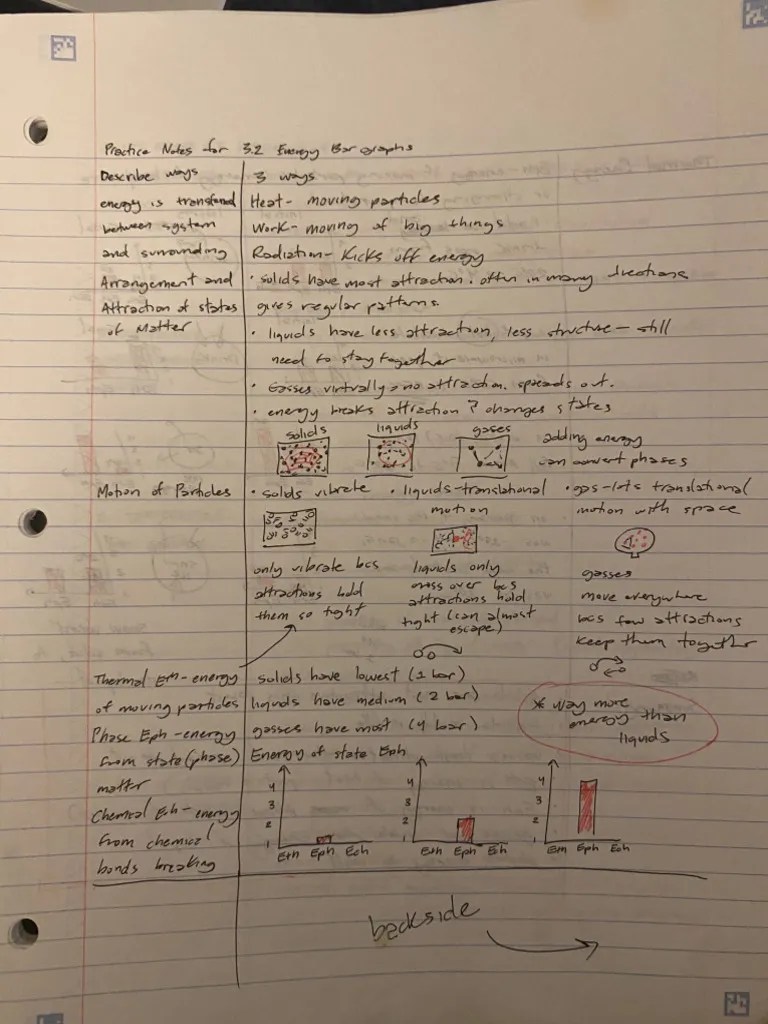 Practice Notes for 3.2 Energy Bar graphs
Describe ways
energy is transfered
between system
and surrounding
3 ways
Heat- moving particles
Work- moving of big things
Radiation- Kicks off energy
Arrangement and
Attraction of states
of Matter
• solids have most attraction. often in many directions
gives regular patterns.
• liquids have less attraction, less structure - still
need to stay together
• Gasses virtually no attraction. spreads out.
• energy breaks attraction & changes states
solids liquids gases
adding energy
can convert phases
Motion of Particles
• solids vibrate
only vibrate bcs
attractions hold
them so tight
• liquids-translational
motion
liquids only
over bcs
attractions hold
tight (can almost
escape)
• gas-lots translational
motion with space
gasses
move everywhere
bcs few attractions
keep them together
Thermal Eth-energy
of moving particles
Phase Eph-energy
from state (phase)
matter
Chemical Eh-energy
from chemical
bonds breaking
solids have lowest (1 bar)
liquids have medium (2 bar)
gasses have most (4 bar)
* way more
energy than
liquids
Energy of state Eph
4
3
2
1
Eth Eph Ech
4
3
2
1
Eth Eph Eh
4
3
2
1
Eth Eph Ech
backside